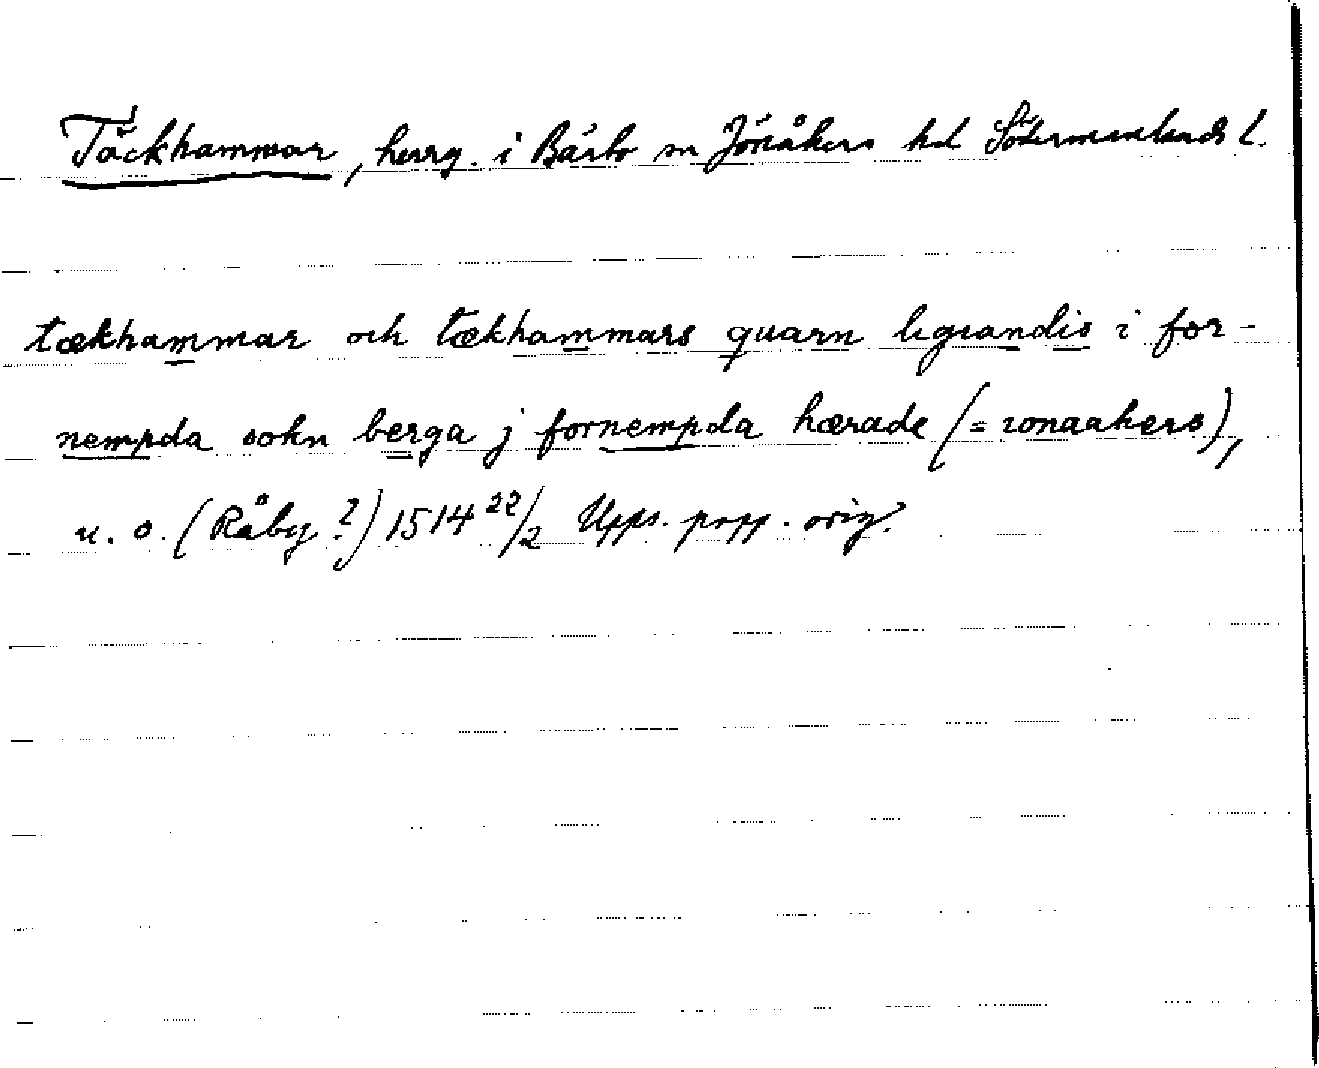 Täckhammar, herrg. i Bärbo sn Jönåkers hd Södermanlands l.
tækhammar och tækhammars quarn ligiandis i for-
nempda sokn berga j fornempda hærade (= ronaakers),
u. o. (Råby?) 1514 22/2 Upps. papp. orig.